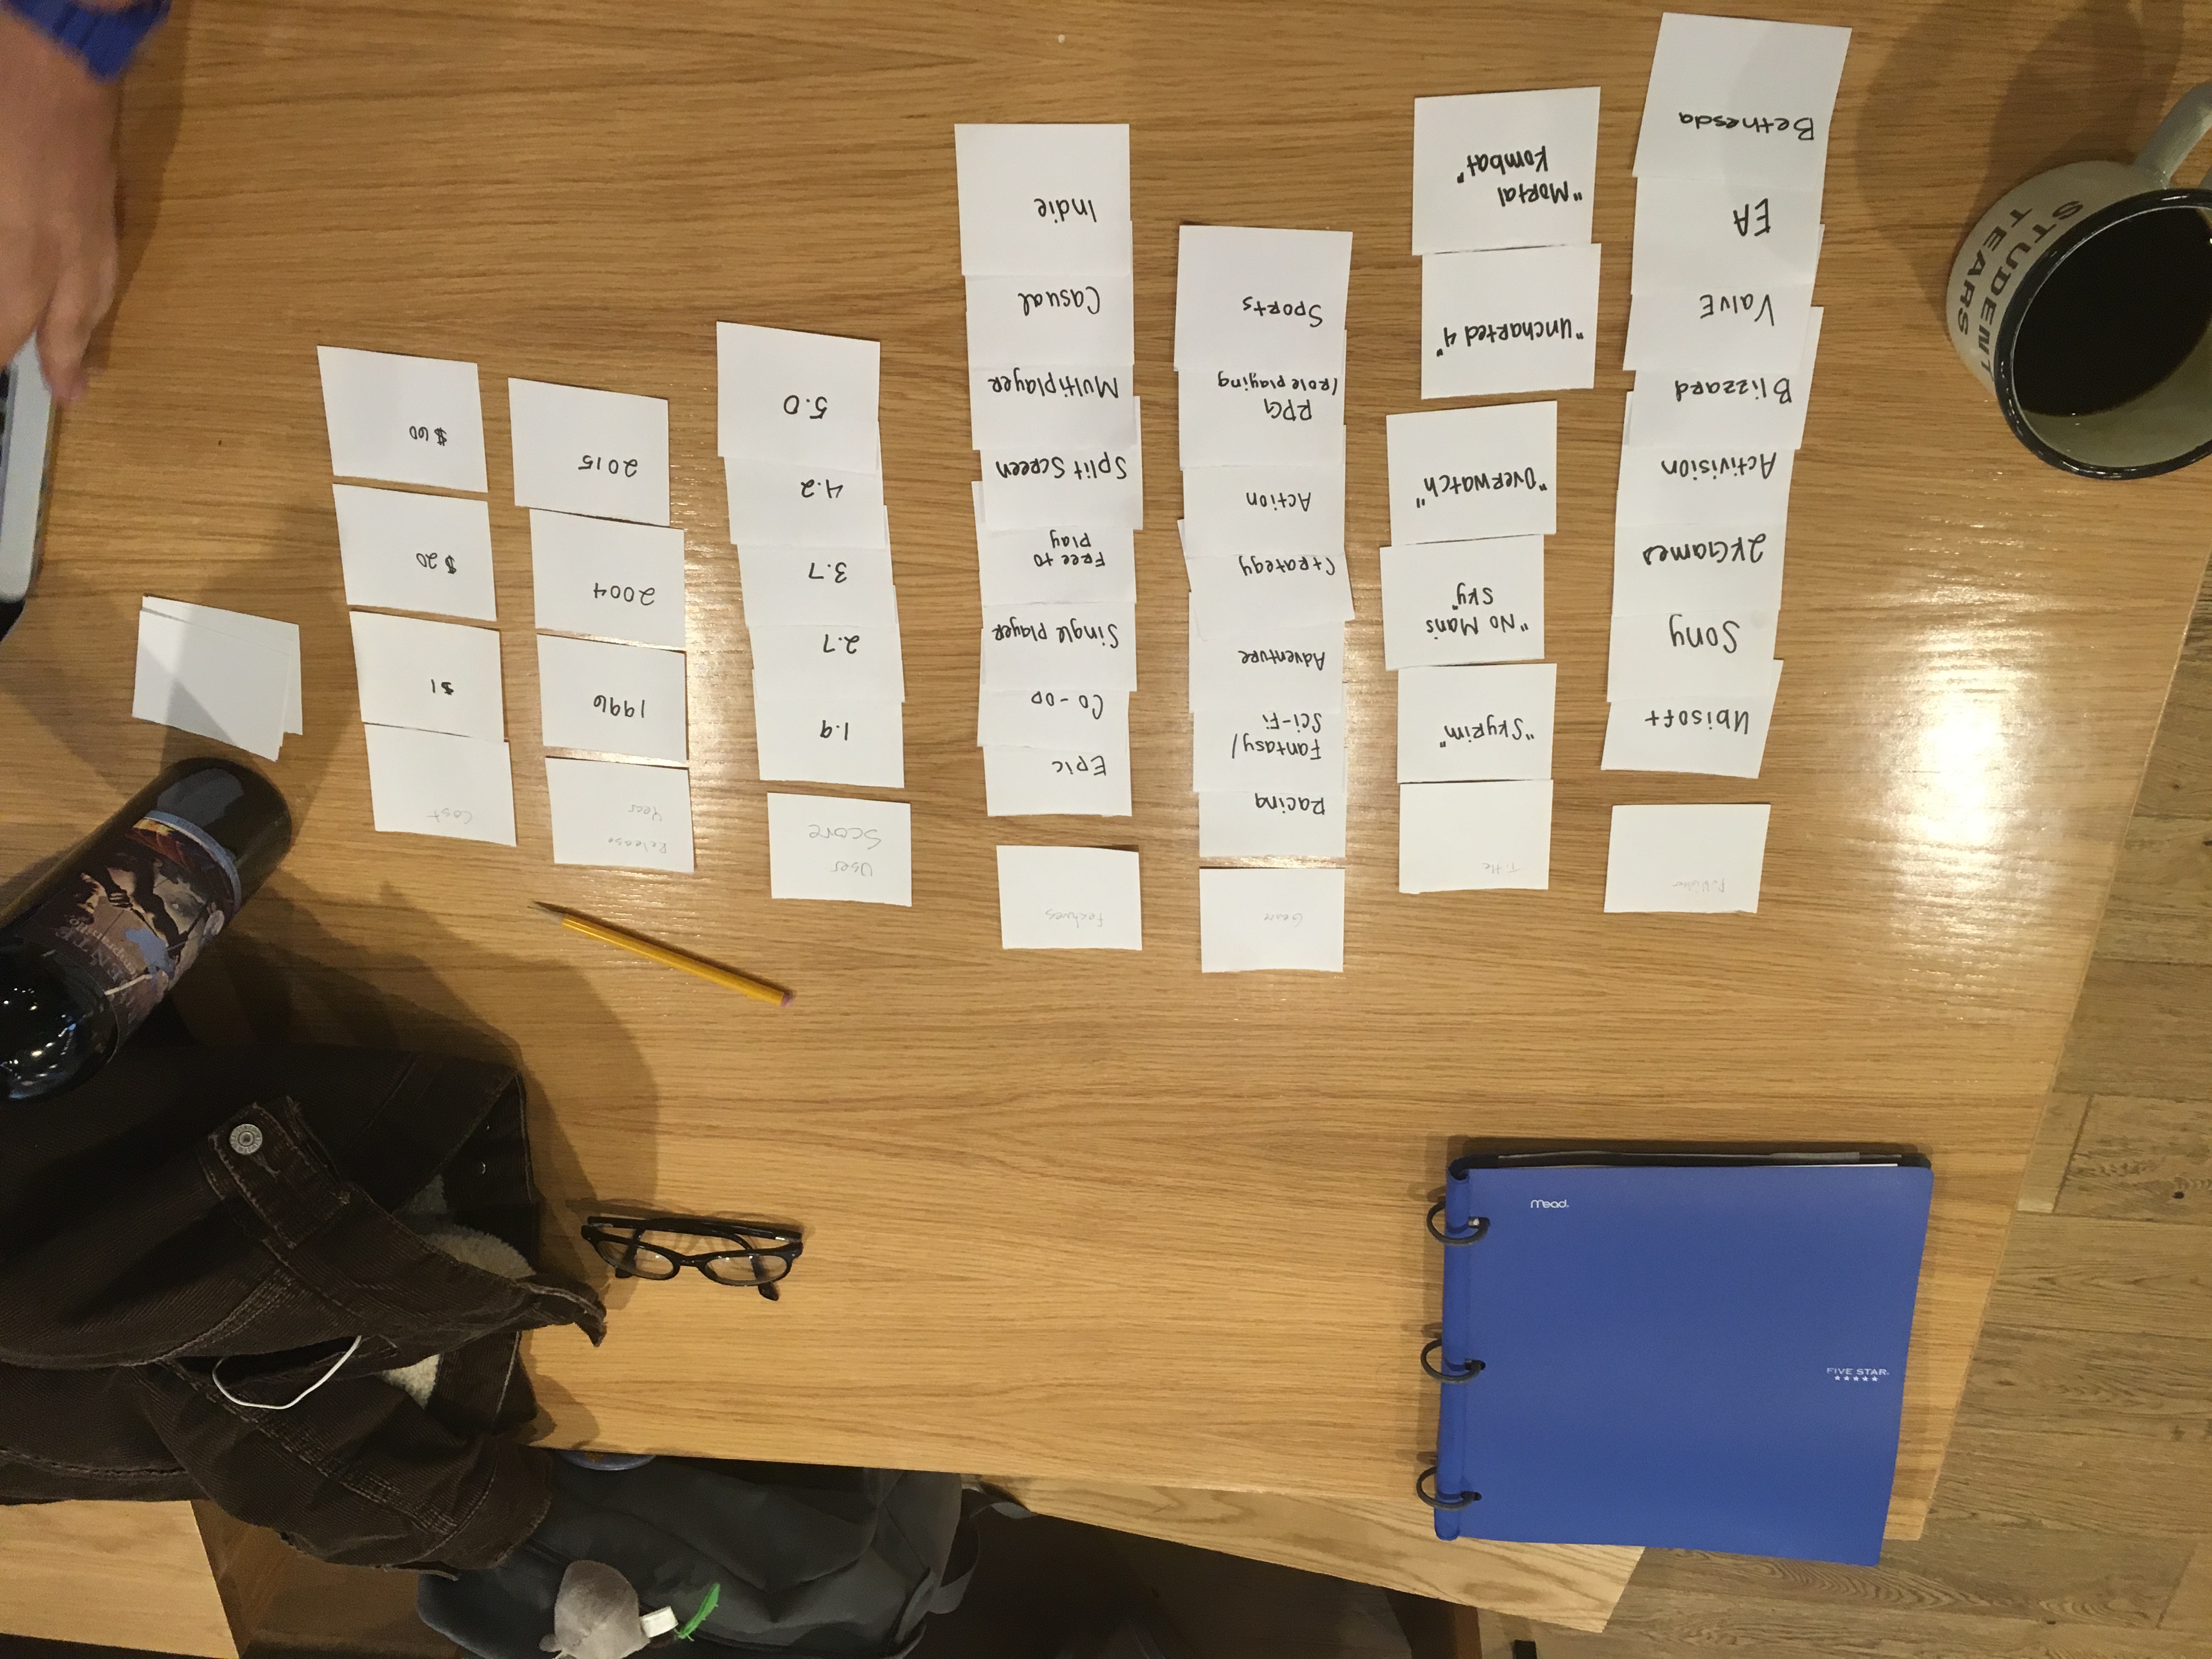 FIVE STAR.
Mead.
Publisher
Ubisoft
Sony
2KGames
Activision
Blizzard
Valve
EA
Bethesda
Title
"Skyrim"
"No Man's
Sky"
"Overwatch"
"Uncharted 4"
"Mortal
Kombat"
Genre
Racing
Fantasy/
Sci-Fi
Adventure
Strategy
Action
RPG
/Role playing
Sports
Features
Epic
Co-op
Single player
Free to
Play
Split Screen
Multiplayer
Casual
Indie
User
Score
1.9
2.7
3.7
4.2
5.0
Release
Year
1996
2004
2015
Cost
$1
$20
$60
STUDENT
TEARS